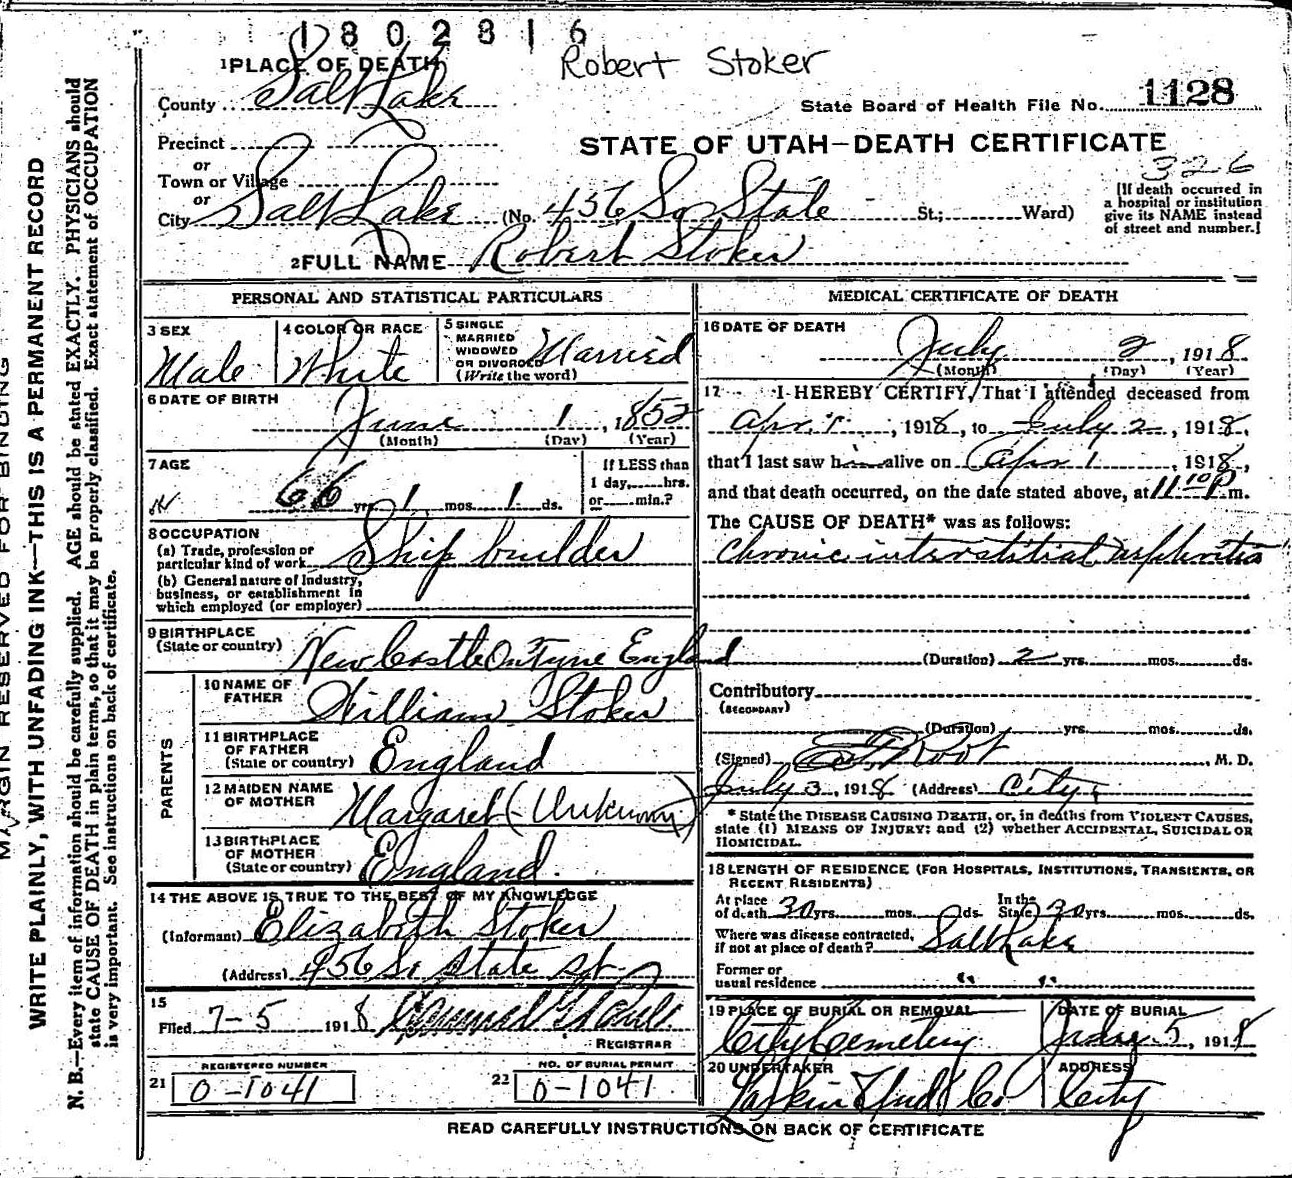 1802816
Robert Stoker
1 PLACE OF DEATH
County Salt Lake
State Board of Health File No. 1128
Precinct
STATE OF UTAH—DEATH CERTIFICATE
326
or
Town or Village
or
City Salt Lake (No. 456 So State St.; Ward)
[If death occurred in
a hospital or institution
give its NAME instead
of street and number.]
2 FULL NAME Robert Stoker
PERSONAL AND STATISTICAL PARTICULARS
3 SEX Male
4 COLOR OR RACE White
5 SINGLE
MARRIED
WIDOWED
OR DIVORCED Married
(Write the word)
6 DATE OF BIRTH
June 1, 1852
(Month) (Day) (Year)
7 AGE
66 yrs. 1 mos. 1 ds.
If LESS than
1 day, hrs.
or min.?
8 OCCUPATION
(a) Trade, profession or
particular kind of work Ship builder
(b) General nature of industry,
business, or establishment in
which employed (or employer)
9 BIRTHPLACE
(State or country) New Castle On Tyne England
PARENTS
10 NAME OF
FATHER William Stoker
11 BIRTHPLACE
OF FATHER
(State or country) England
12 MAIDEN NAME
OF MOTHER Margaret (Unknown)
13 BIRTHPLACE
OF MOTHER
(State or country) England
14 THE ABOVE IS TRUE TO THE BEST OF MY KNOWLEDGE
(Informant) Elizabeth Stoker
(Address) 456 So State St.
15
Filed 7-5 1918
REGISTRAR
REGISTERED NUMBER
21 0-1041
NO. OF BURIAL PERMIT
22 0-1041
MEDICAL CERTIFICATE OF DEATH
16 DATE OF DEATH
July 2, 1918
(Month) (Day) (Year)
17 I HEREBY CERTIFY, That I attended deceased from
Apr. 1, 1918, to July 2, 1918,
that I last saw him alive on Apr 1, 1918,
and that death occurred, on the date stated above, at 11 10 P m.
The CAUSE OF DEATH* was as follows:
Chronic interstitial nephritis
(Duration) 2 yrs. mos. ds.
Contributory
(SECONDARY)
(Duration) yrs. mos. ds.
(Signed) Root, M. D.
July 3, 1918 (Address) City
* State the DISEASE CAUSING DEATH, or, in deaths from VIOLENT CAUSES,
state (1) MEANS OF INJURY; and (2) whether ACCIDENTAL, SUICIDAL OR
HOMICIDAL.
18 LENGTH OF RESIDENCE (FOR HOSPITALS, INSTITUTIONS, TRANSIENTS, OR
RECENT RESIDENTS)
At place
of death 30 yrs. mos. ds.
In the
State 30 yrs. mos. ds.
Where was disease contracted,
if not at place of death? Salt Lake
Former or
usual residence " "
19 PLACE OF BURIAL OR REMOVAL
City Cemetery
DATE OF BURIAL
July 5, 1918
20 UNDERTAKER
Co
ADDRESS
City
READ CAREFULLY INSTRUCTIONS ON BACK OF CERTIFICATE
MARGIN RESERVED FOR BINDING
WRITE PLAINLY, WITH UNFADING INK—THIS IS A PERMANENT RECORD
N. B.—Every item of information should be carefully supplied. AGE should be stated EXACTLY. PHYSICIANS should
state CAUSE OF DEATH in plain terms, so that it may be properly classified. Exact statement of OCCUPATION
is very important. See instructions on back of certificate.